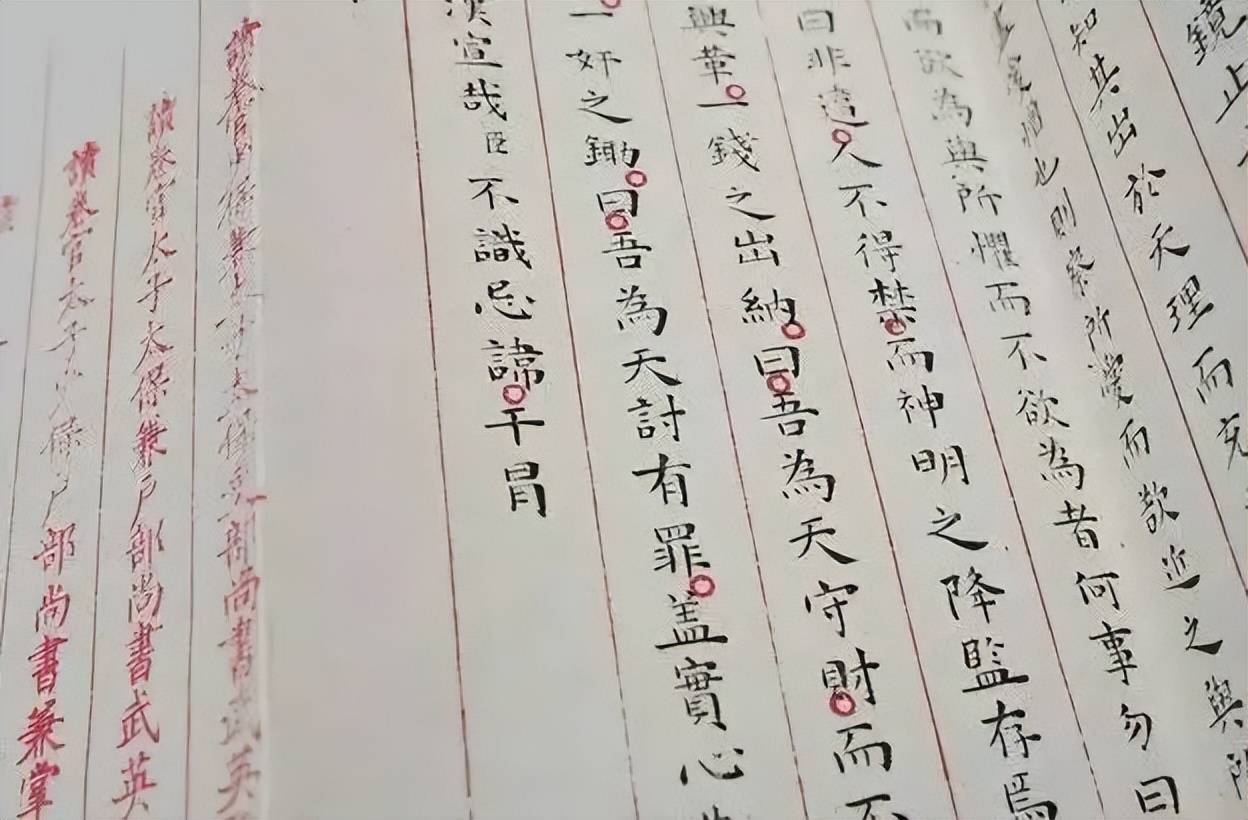 鏡止
知其出於天理而充
也則察所愛而欲近之與所
而欲為與所懼而不欲為者何事勿曰
曰非遠人不得禁而神明之降監存焉
興革一錢之出納曰吾為天守財而不
一奸之鋤曰吾為天討有罪盖實心
漢宣哉臣不識忌諱干冒
讀卷官 太保 部尚書武英
讀卷官太子太保兼戶部尚書武英
讀卷官太子少保戶部尚書兼掌